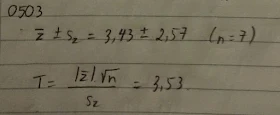 0503
z̄ ± s_z = 3,43 ± 2,57 (n=7)
T = |z̄|√n / s_z = 3,53